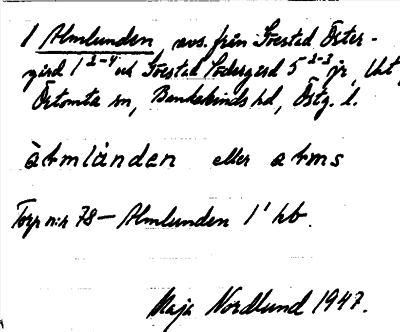 1 Almlunden, avs. från Torstad Öster-
gård 1 2-4 och Torstad Södergård 5 2-3 jr, Unt,
Örtomta sn, Bankekinds hd, Östg. l.
àtmlànden eller atms
Torp n:r 78 — Almlunden 1¹ kb.
Maja Nordlund 1947.